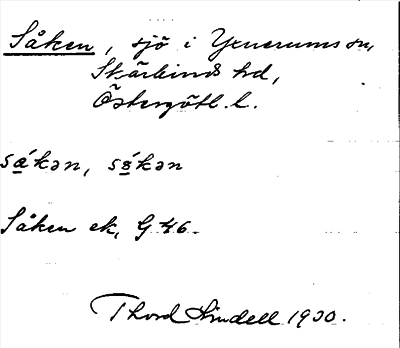 Såken, sjö i Yxnerums sn,
Skärkinds hd,
Östergötl. l.
sá̲kən, sá̲kən
Såken ek, G 46.
Thord Lindell 1930.